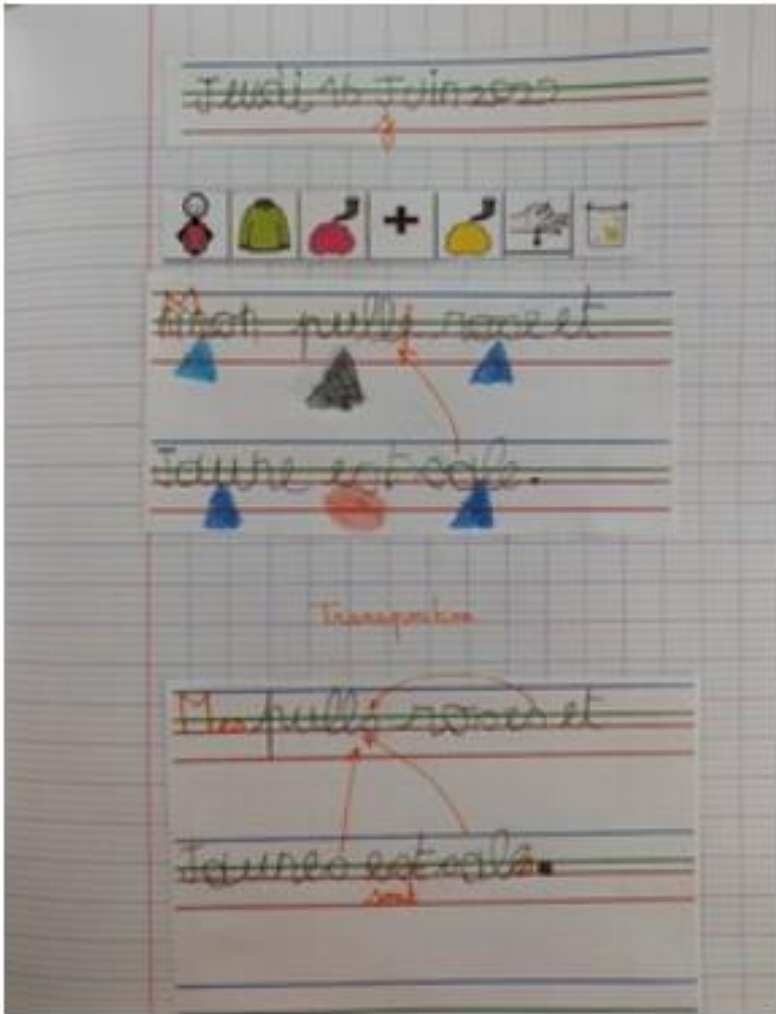 Jeudi 16 Juin 2022
j
+
Mmon pull rose et
Jaune est sale.
Transposition
Mes pulls roses et
Jaunes est sales.
sont